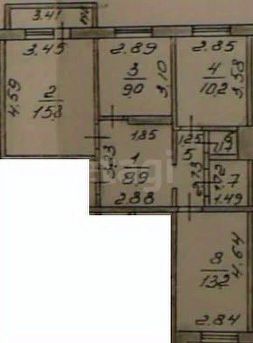 3.41
3.45
2.89
2.85
4.59
2
15.8
3
9.0
3.10
4
10.2
3.58
1.85
1.25
5
1
8.9
3.23
2.88
7
1.49
8
13.2
4.64
2.84